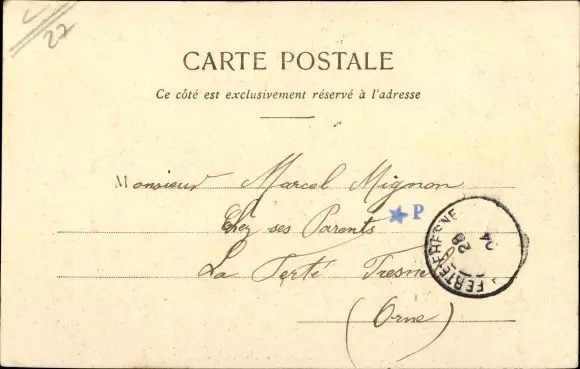 22
CARTE POSTALE
Ce côté est exclusivement réservé à l'adresse
Monsieur Marcel Mignon
Chez ses Parents
P
La Ferté Fresnel
(Orne)
FERTÉ-FRESNEL
28
04